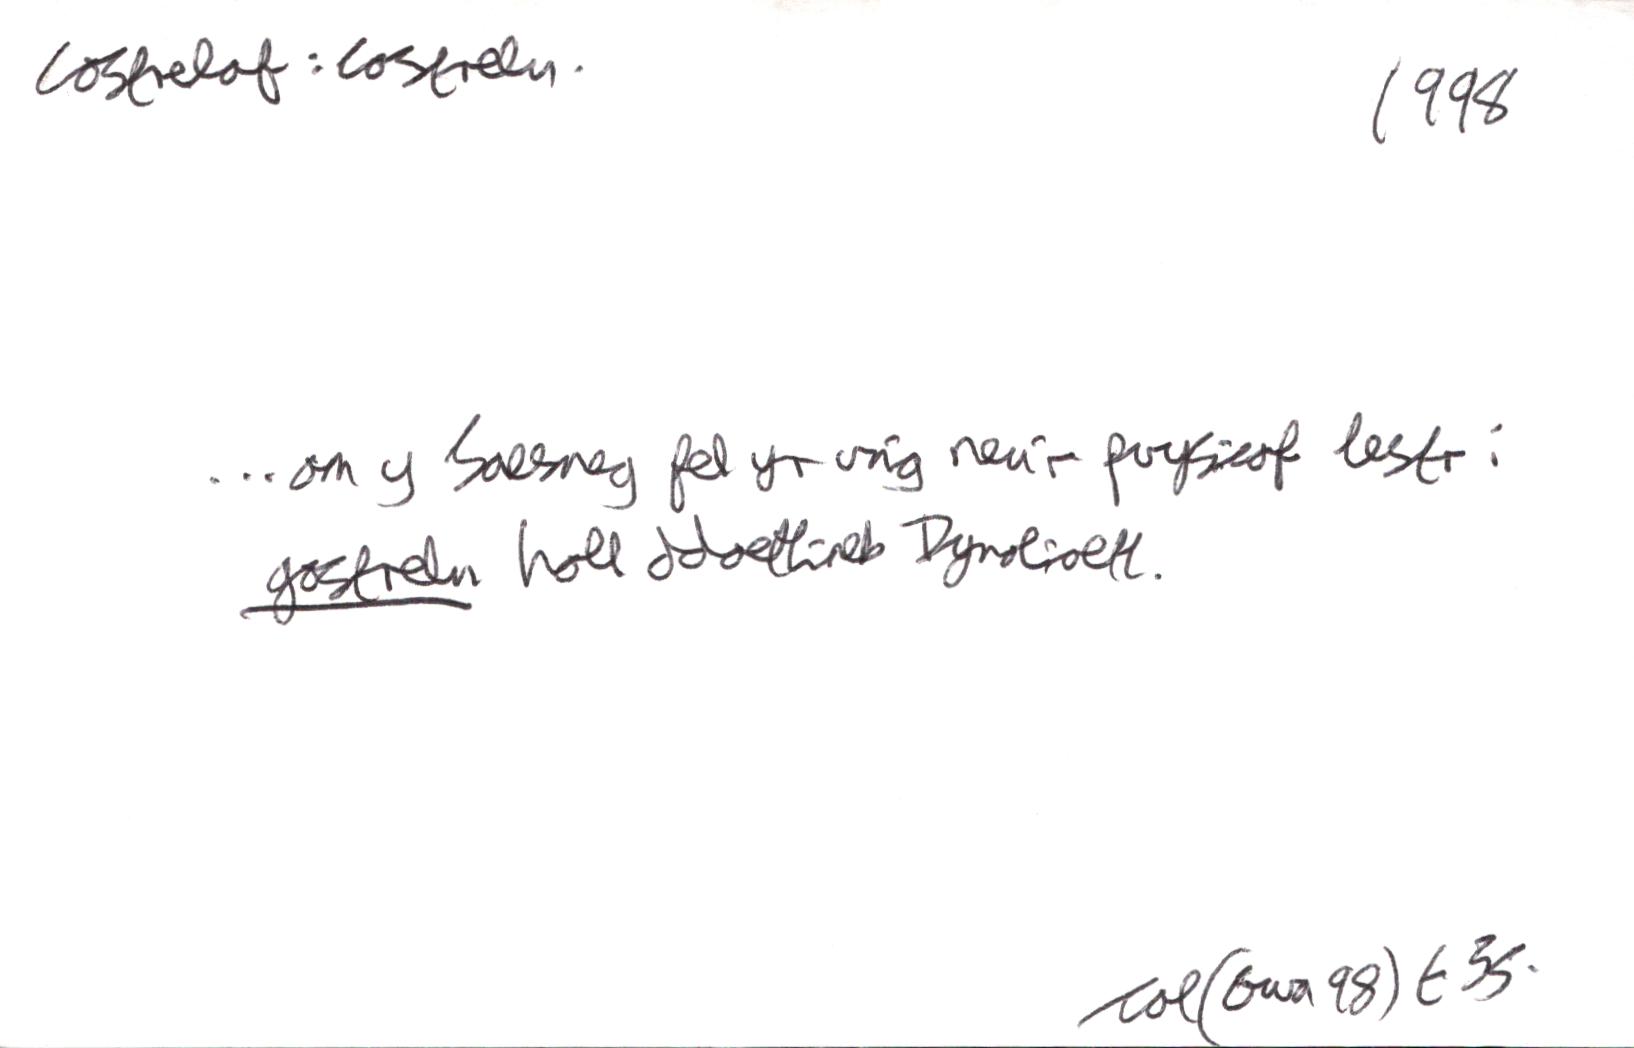 costrelaf: costrelu.
1998
...am y Saesneg fel yr unig neu'r pwysicaf lestr i
gostrelu holl ddoethineb Dynoliaeth.
(Gwa 98) t 35.